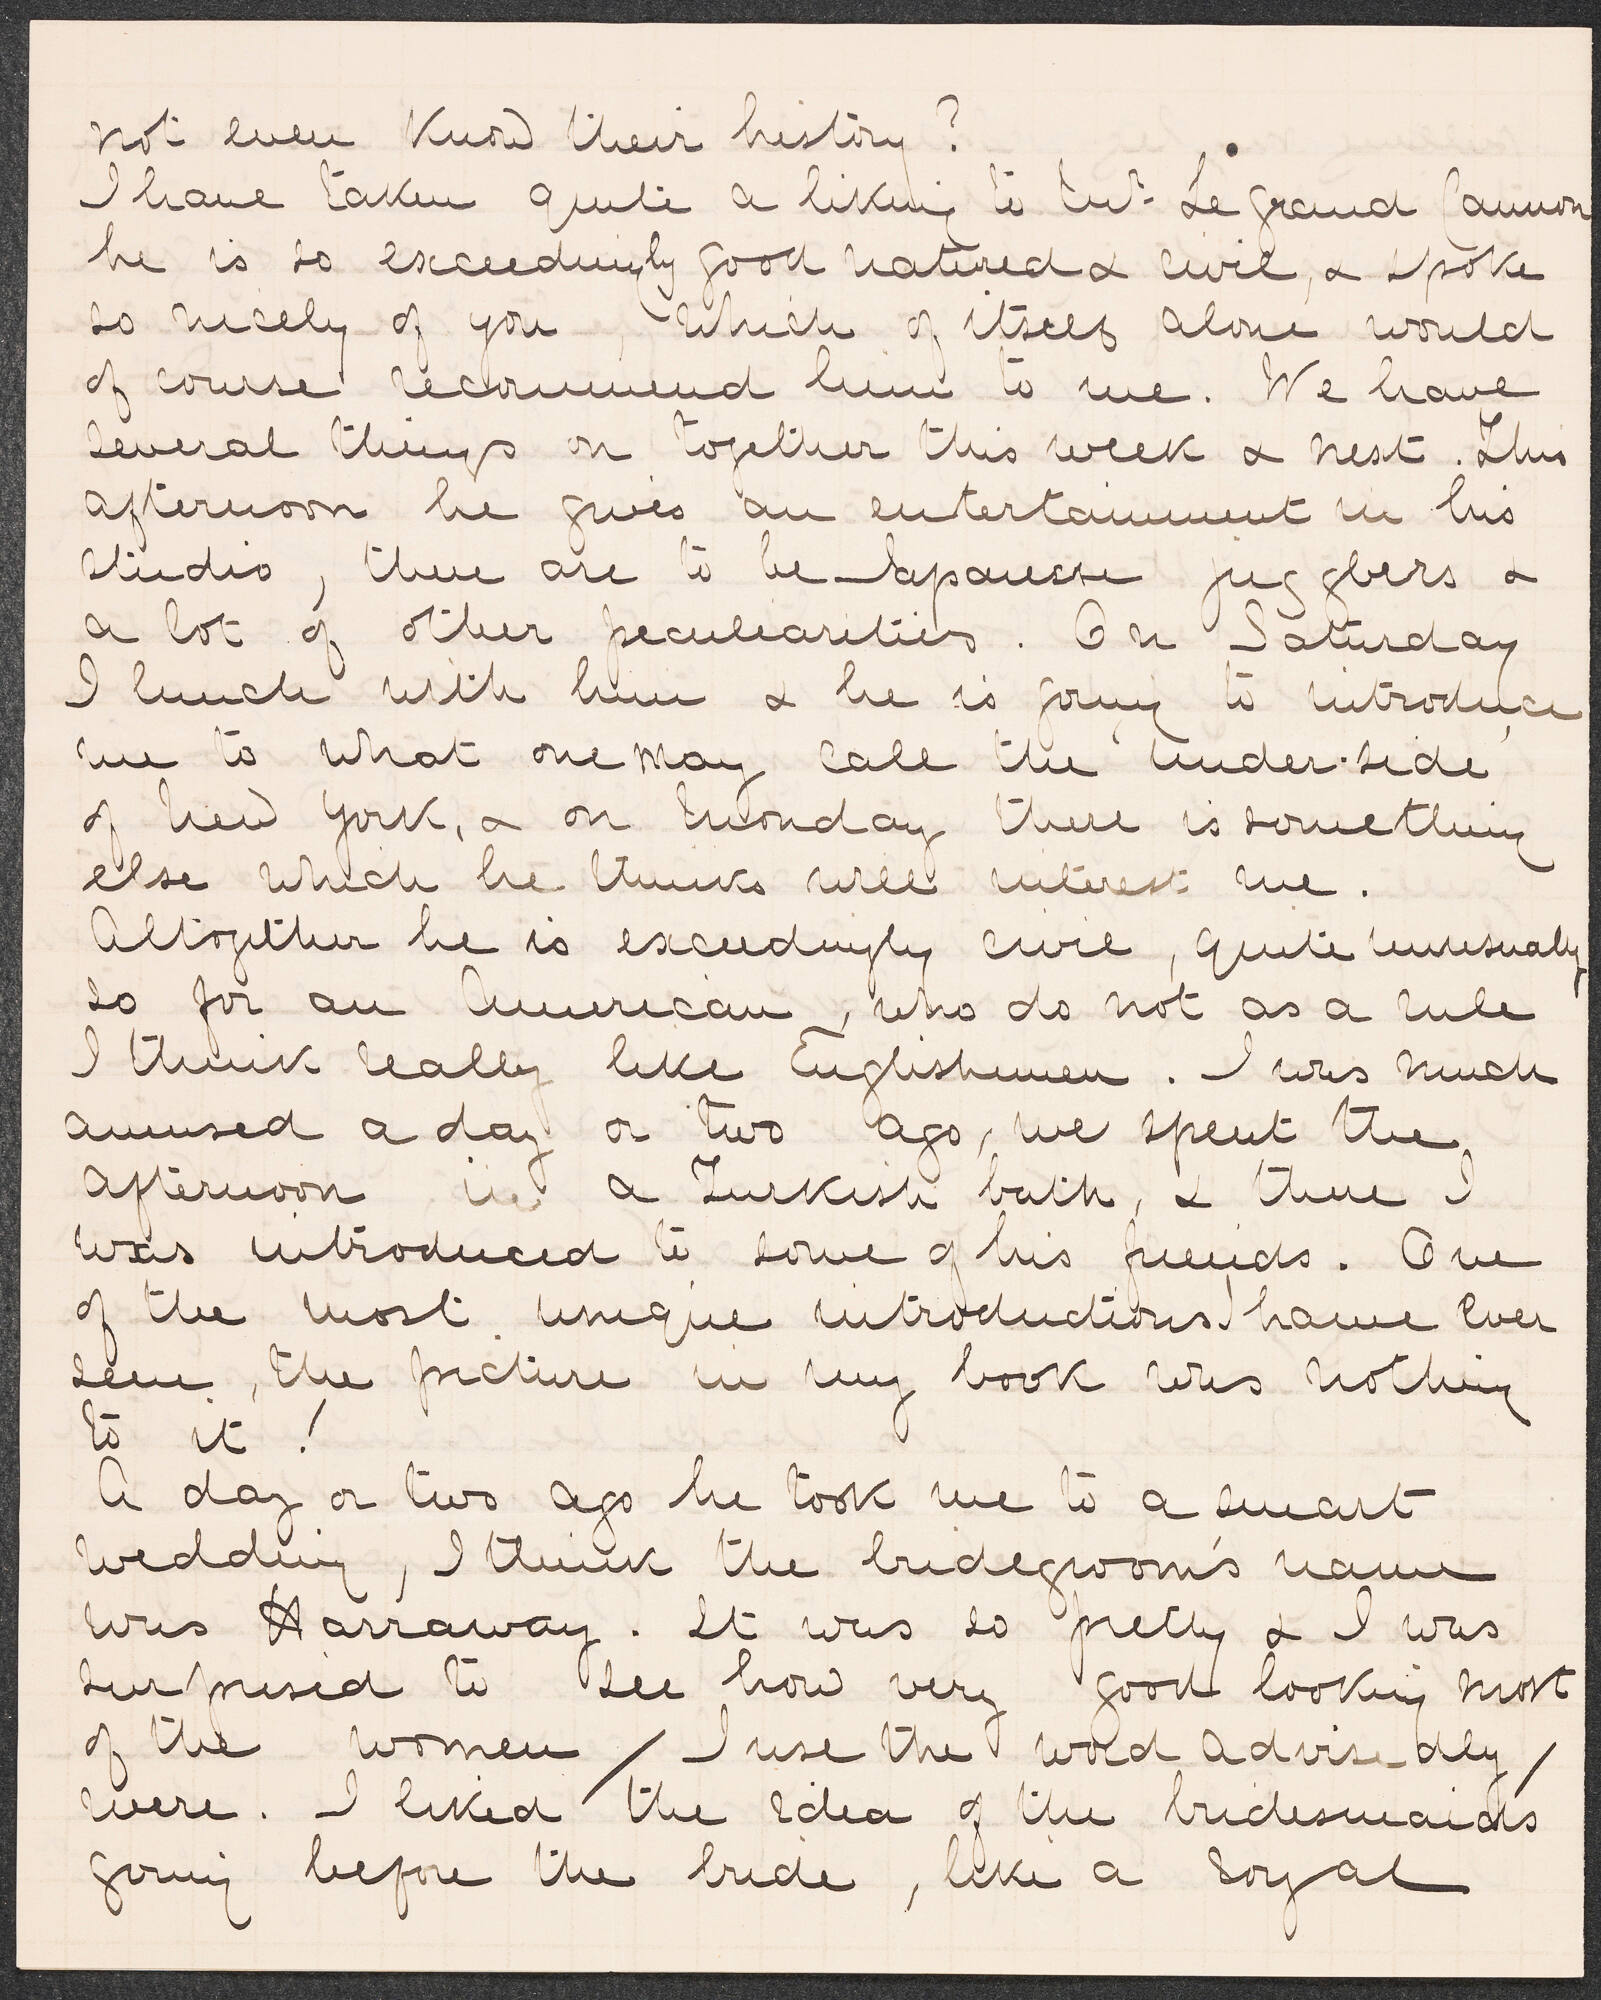 not even know their history?
I have taken quite a liking to Mr. Le grand Cannon
he is so exceedingly good natured & civil, & spoke
so nicely of you, which of itself alone would
of course recommend him to me. We have
several things on together this week & next. This
afternoon he gives an entertainment in his
studio, there are to be Japanese jugglers &
a lot of other peculiarities. On Saturday
I lunch with him & he is going to introduce
me to what one may call the 'under-side'
of New York, & on Monday there is something
else which he thinks will interest me.
Altogether he is exceedingly civil, quite unusually
so for an American, who do not as a rule
I think really like Englishmen. I was much
amused a day or two ago, we spent the
afternoon in a Turkish bath, & there I
was introduced to some of his friends. One
of the most unique introductions I have ever
seen, the picture in my book was nothing
to it!
A day or two ago he took me to a smart
wedding, I think the bridegroom's name
was Harraway. It was so pretty & I was
surprised to see how very good looking most
of the women / I use the word advisedly /
were. I liked the idea of the bridesmaids
going before the bride, like a royal